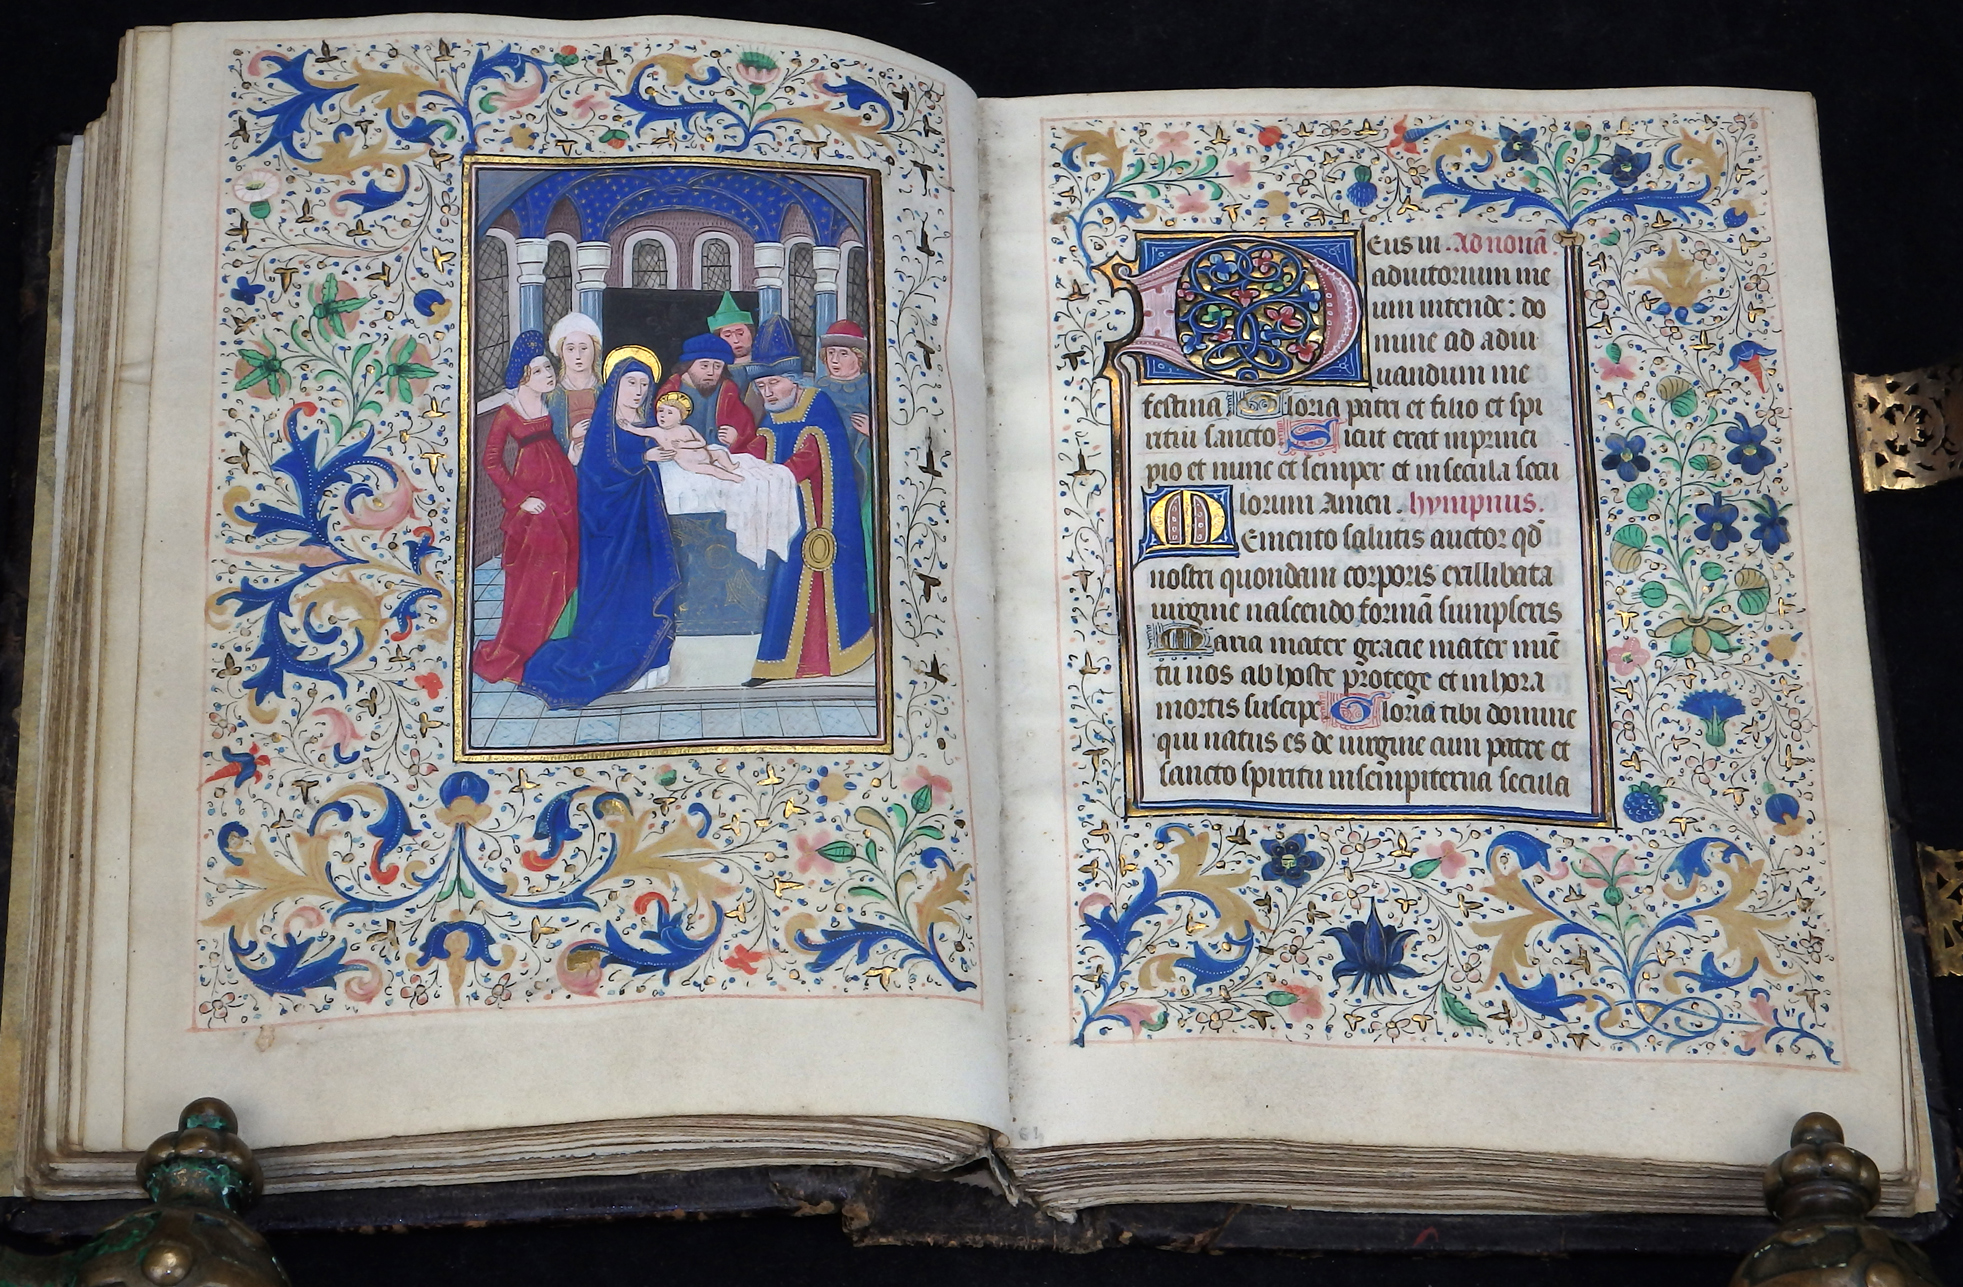 Deus in. Ad nonā
adiutorium me
um intende: do
mine ad adiu
uandum me
festina Gloria patri et filio et spi
ritui sancto Sicut erat in princi
pio et nunc et semper et in secula secu
lorum Amen. hympnus.
Memento salutis auctor qd̄
nostri quondam corporis ex illibata
uirgine nascendo formā sumpseris
Maria mater gracie mater mīe
tu nos ab hoste protege et in hora
mortis suscipe Gloria tibi domine
qui natus es de uirgine cum patre et
sancto spiritu in sempiterna secula
61